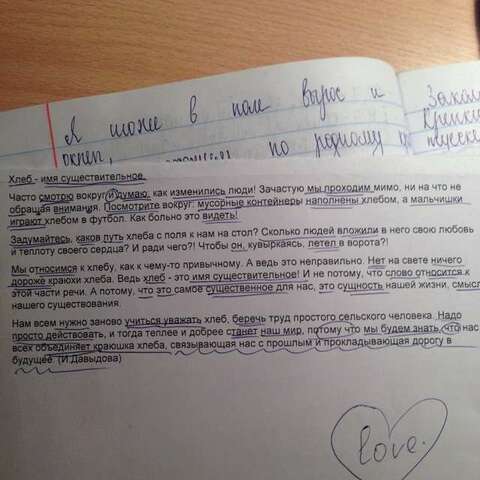 Я тоже в поле вырос и
окреп,
по родному
Закал
Крепки
Хлеб - имя существительное.
Часто смотрю вокруг и думаю, как изменились люди! Зачастую мы проходим мимо, ни на что не
обращая внимания. Посмотрите вокруг: мусорные контейнеры наполнены хлебом, а мальчишки
играют хлебом в футбол. Как больно это видеть!
Задумайтесь, каков путь хлеба с поля к нам на стол? Сколько людей вложили в него свою любовь
и теплоту своего сердца? И ради чего?! Чтобы он, кувыркаясь, летел в ворота?!
Мы относимся к хлебу, как к чему-то привычному. А ведь это неправильно. Нет на свете ничего
дороже краюхи хлеба. Ведь хлеб - это имя существительное! И не потому, что слово относится к
этой части речи. А потому, что это самое существенное для нас, это сущность нашей жизни, смысл
нашего существования.
Нам всем нужно заново учиться уважать хлеб, беречь труд простого сельского человека. Надо
просто действовать, и тогда теплее и добрее станет наш мир, потому что мы будем знать, что нас
всех объединяет краюшка хлеба, связывающая нас с прошлым и прокладывающая дорогу в
будущее. (И.Давыдова)
love.